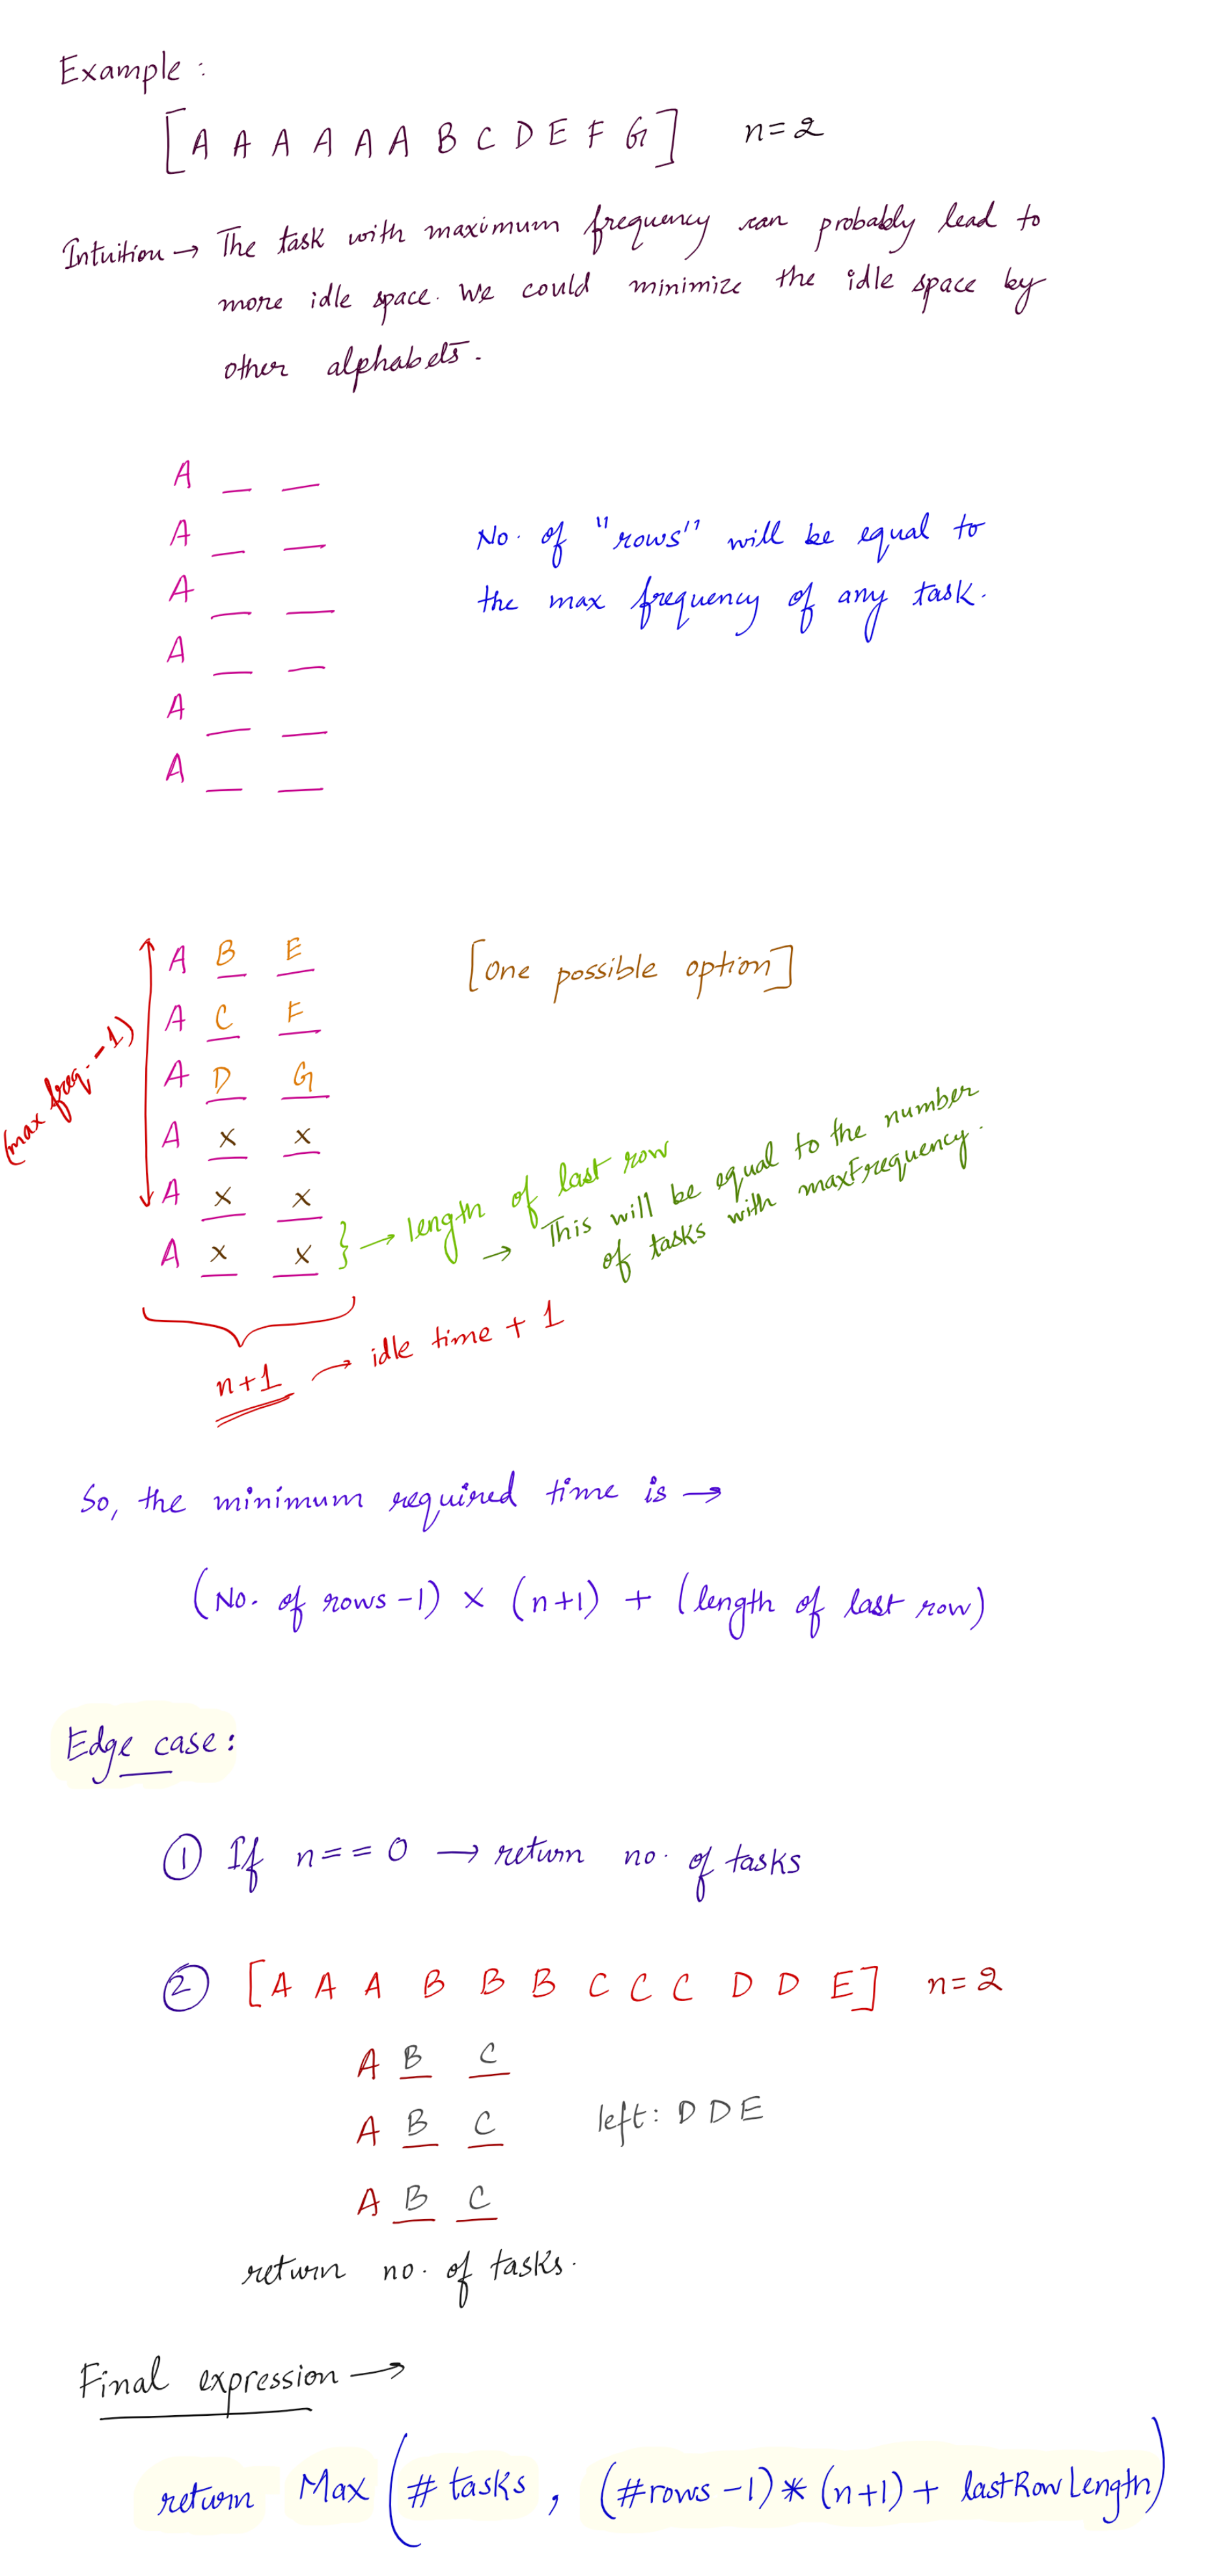 Example :
[A A A A A A B C D E F G] n=2
Intuition → The task with maximum frequency can probably lead to
more idle space. We could minimize the idle space by
other alphabets.
A _ _
A _ _
A _ _
A _ _
A _ _
A _ _
No. of "rows" will be equal to
the max frequency of any task.
(max freq. -1)
A B E
A C F
A D G
A x x
A x x
A x x
[one possible option]
} → length of last row
→ This will be equal to the number
of tasks with maxFrequency.
n+1 → idle time + 1
So, the minimum required time is →
(No. of rows -1) × (n+1) + (length of last row)
Edge case:
① If n == 0 → return no. of tasks
② [A A A B B B C C C D D E] n=2
A B C
A B C
A B C
left: D D E
return no. of tasks.
Final expression →
return Max (# tasks , (#rows -1) * (n+1) + lastRowLength)